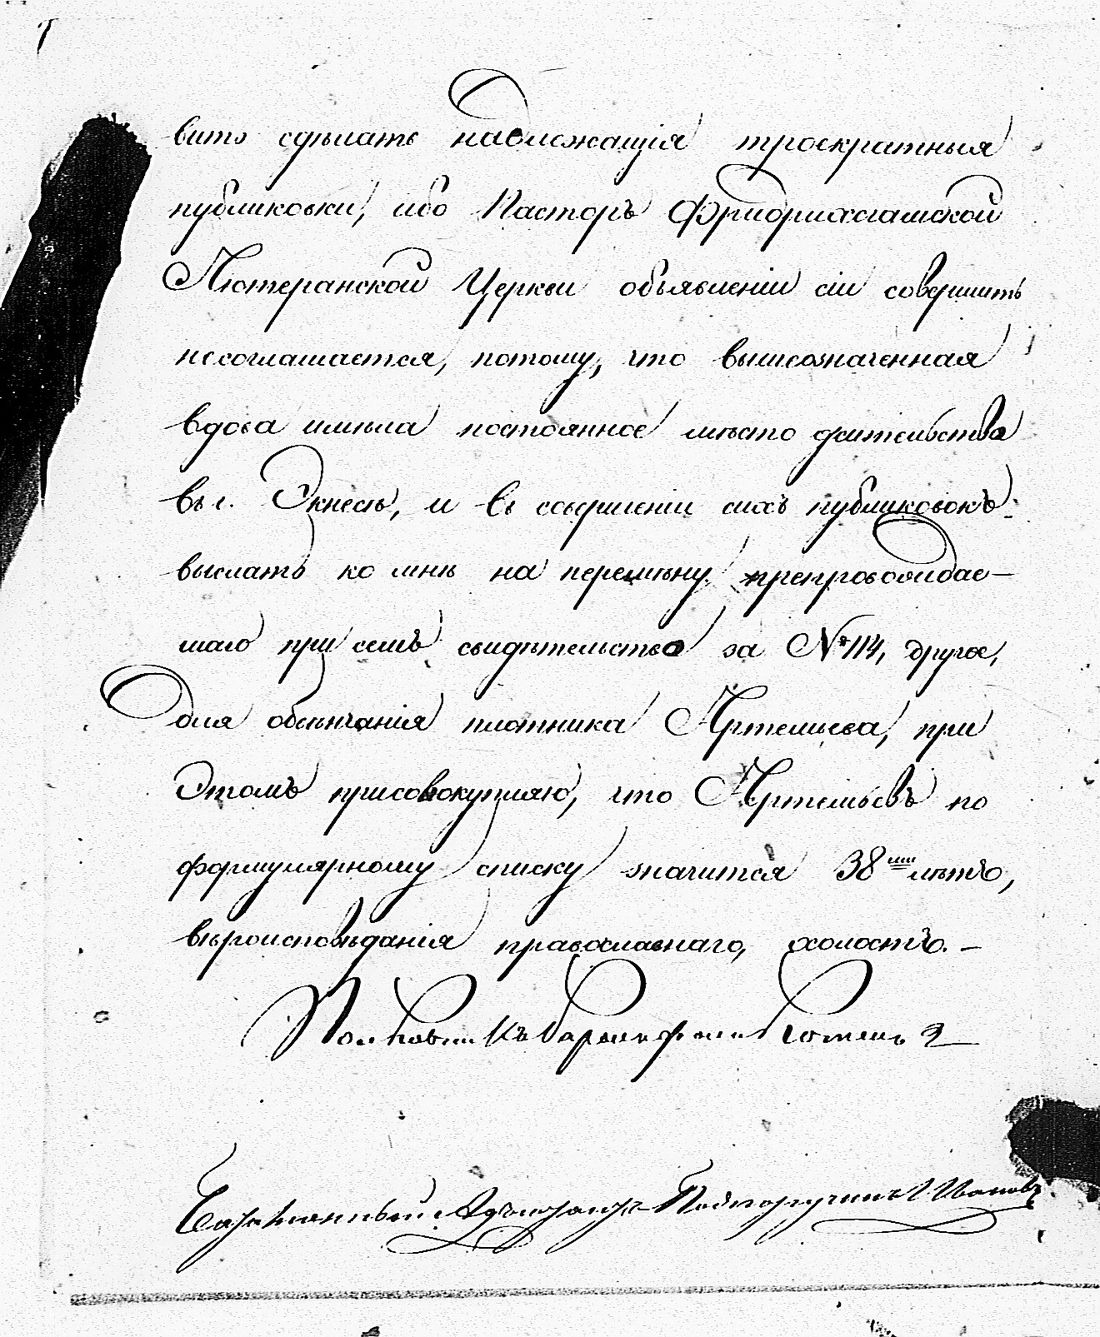 вить сдѣлать надлежащія троекратныя
публиковки, ибо Пасторъ Фридрихсгамской
Лютеранской Церкви объявленіи сіи совершить
несоглашается, потому, что вышеозначенная
вдова имѣла постоянное мѣсто жительства
въ г. Экнесъ, и въ совершеніи сихъ публиковокъ
выслать ко мнѣ на перемѣну, препровождае-
маго при семъ свидѣтельства за № 114, другое,
для обвѣнчанія плотника Артемьева, при
этомъ присовокупляю, что Артемьевъ по
формулярному списку значится 38ми лѣтъ,
вѣроисповѣданія православнаго, холостъ. –
Полковникъ Баронъ 2
Баталіонный Адъютантъ Подпоручикъ Ивановъ